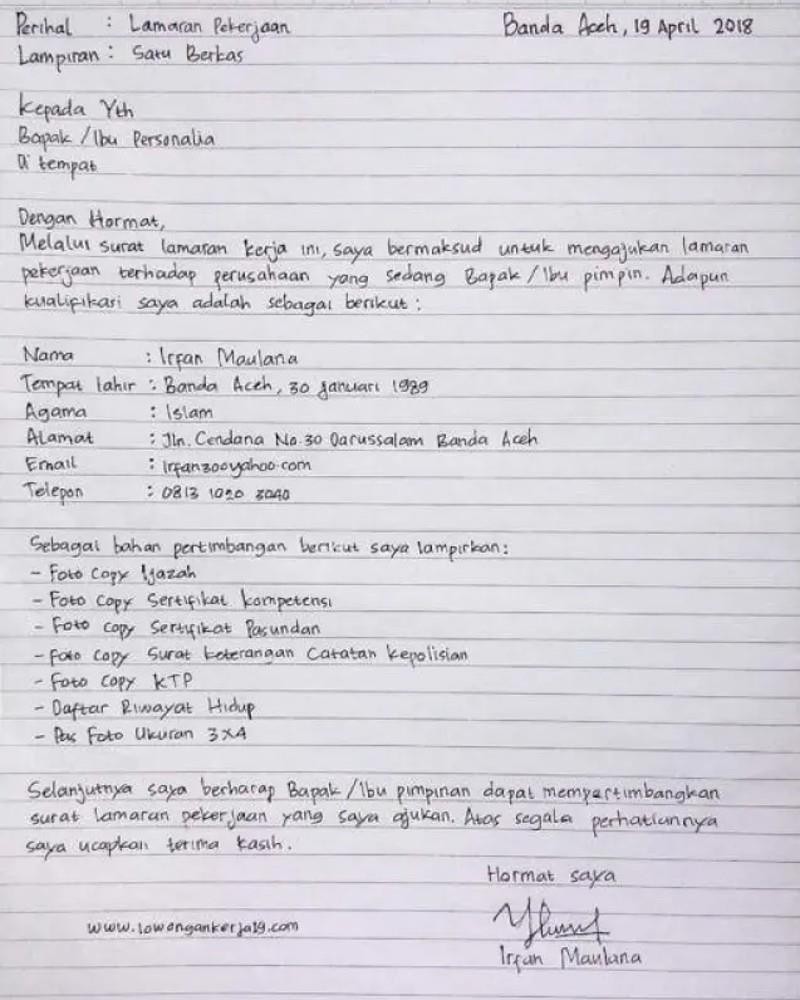 Perihal : Lamaran Pekerjaan Banda Aceh, 19 April 2018
Lampiran : Satu Berkas
Kepada Yth
Bapak /Ibu Personalia
Di tempat
Dengan Hormat,
Melalui surat lamaran kerja ini, saya bermaksud untuk mengajukan lamaran
pekerjaan terhadap perusahaan yang sedang Bapak /Ibu pimpin. Adapun
kualifikasi saya adalah sebagai berikut :
Nama : Irfan Maulana
Tempat lahir : Banda Aceh, 30 Januari 1989
Agama : Islam
Alamat : Jln. Cendana No.30 Darussalam Banda Aceh
Email : Irfan300yahoo.com
Telepon : 0813 1020 3040
Sebagai bahan pertimbangan berikut saya lampirkan :
- Foto Copy Ijazah
- Foto Copy Sertifikat Kompetensi
- Foto Copy Sertifikat Pasundan
- Foto Copy Surat Keterangan Catatan Kepolisian
- Foto Copy KTP
- Daftar Riwayat Hidup
- Pas Foto Ukuran 3x4
Selanjutnya saya berharap Bapak /Ibu pimpinan dapat mempertimbangkan
surat lamaran pekerjaan yang saya ajukan. Atas segala perhatiannya
saya ucapkan terima kasih.
Hormat saya
www.lowongankerja19.com
Irfan Maulana